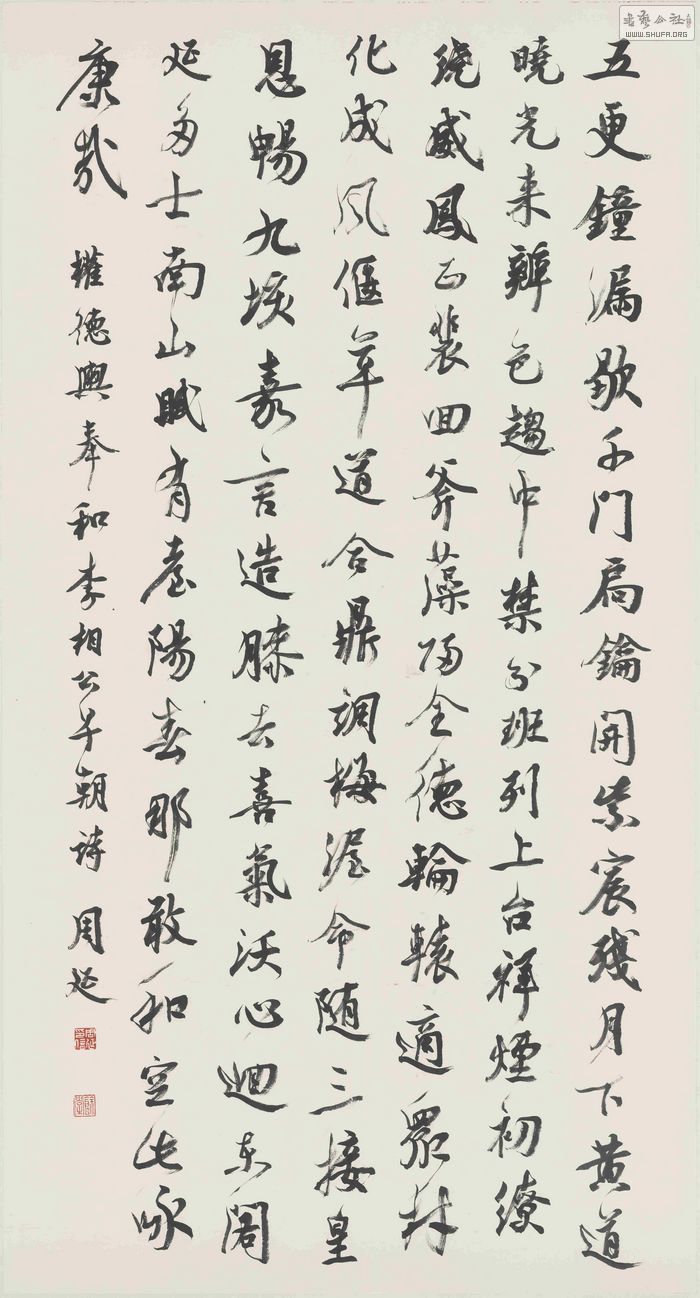 書藝公社
WWW.SHUFA.ORG
五更鐘漏歇千门扃鑰開紫宸残月下黄道
曉光来辨色趨中禁分班列上台祥煙初繚
繞威鳳正裴回斧藻歸全德輪轅適眾材
化成風偃草道合鼎調梅渥命随三接皇
恩暢九垓嘉言造膝去喜氣沃心迴东阁
延多士南山賦有臺陽春那敢和空此咏
康哉 權德輿奉和李相公早朝诗 周延